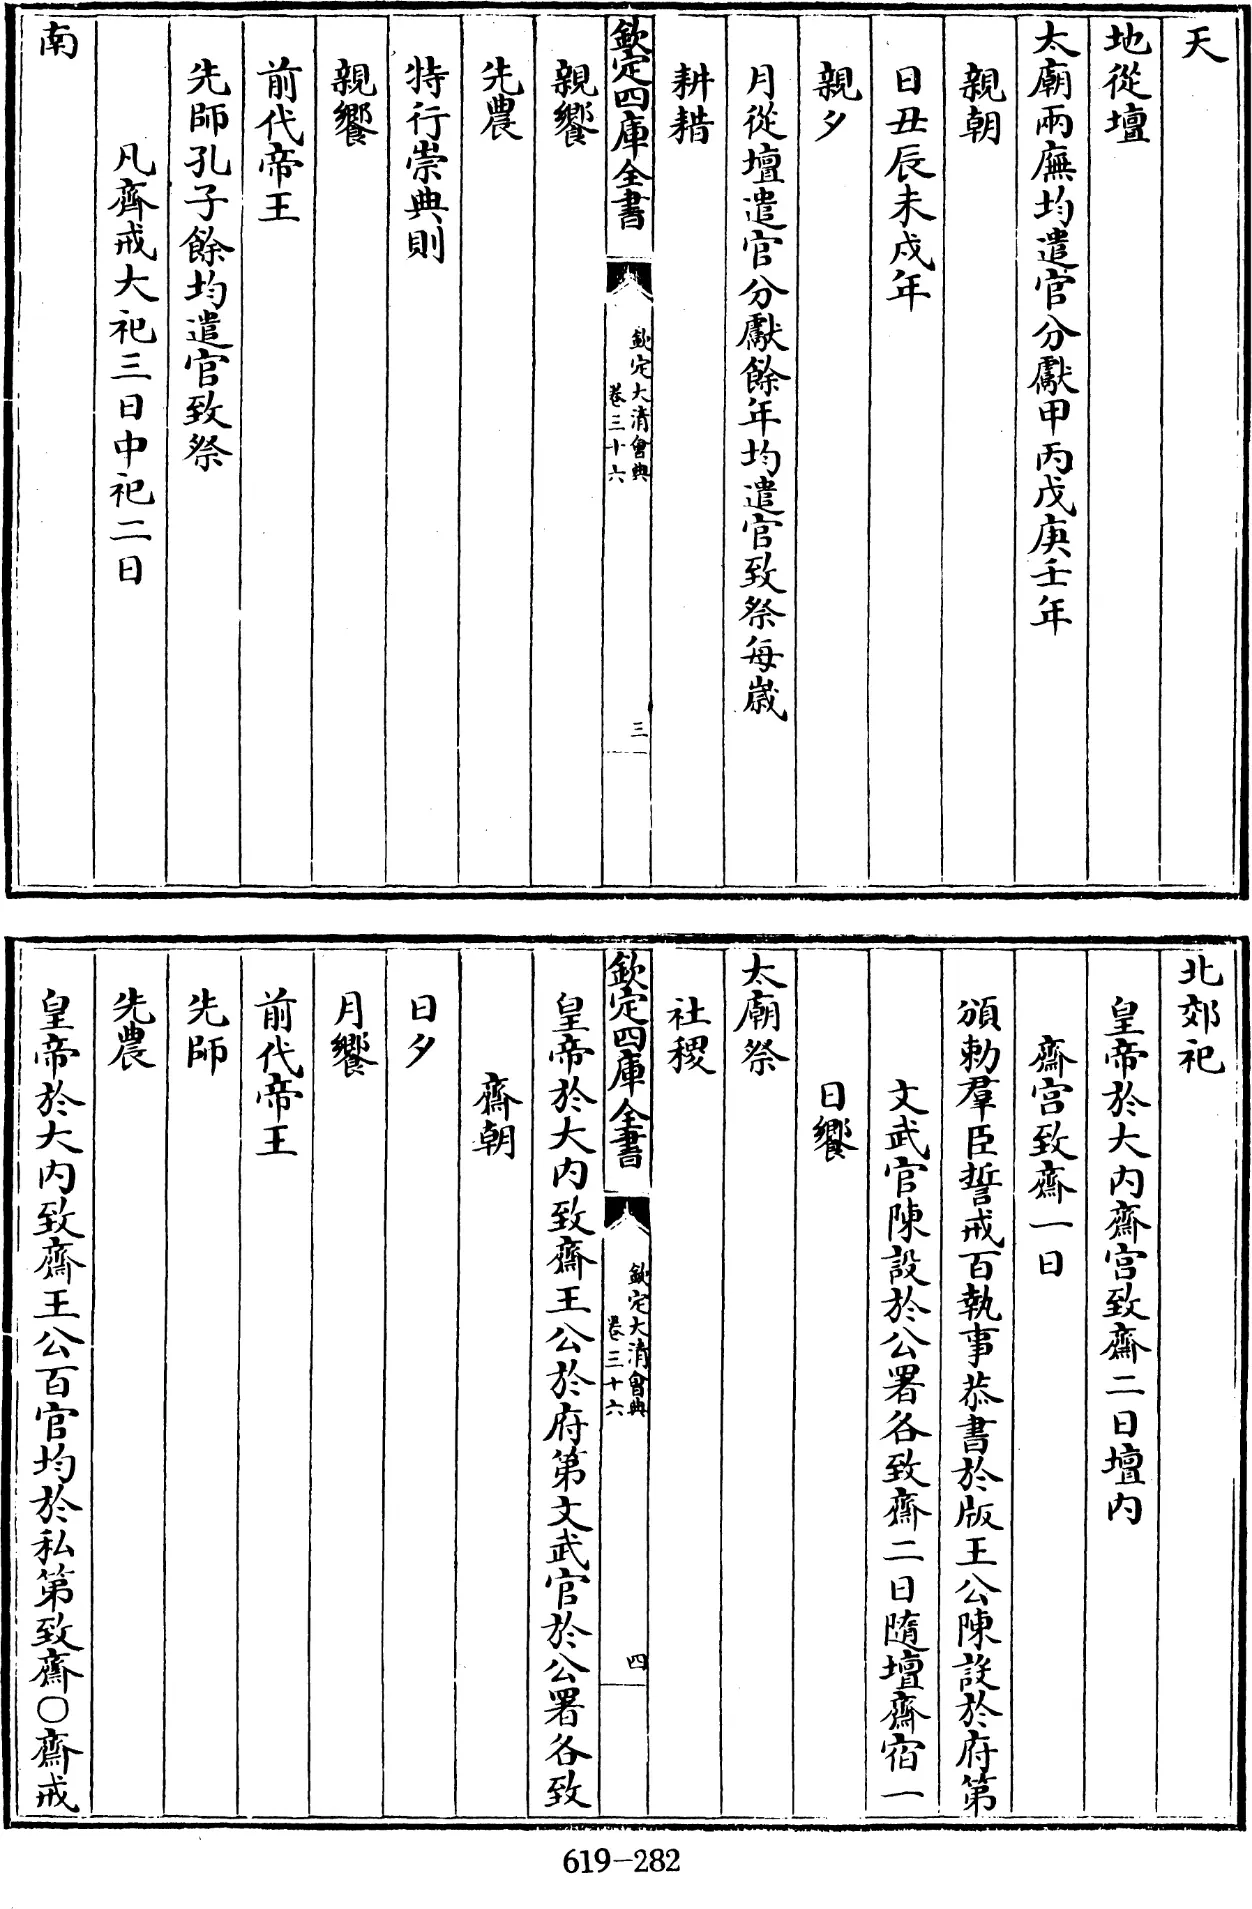 天
地從壇
太廟兩廡均遣官分獻甲丙戊庚壬年
親朝
日丑辰未戌年
親夕
月從壇遣官分獻餘年均遣官致祭每歲
耕耤
欽定四庫全書
欽定大清會典
卷三十六
三
親饗
先農
特行崇典則
親饗
前代帝王
先師孔子餘均遣官致祭
凡齊戒大祀三日中祀二日
南
北郊祀
皇帝於大内齋宫致齋二日壇内
齋宫致齋一日
頒勅羣臣誓戒百執事恭書於版王公陳設於府第
文武官陳設於公署各致齋二日隨壇齋宿一
日饗
太廟祭
社稷
欽定四庫全書
欽定大清會典
卷三十六
四
皇帝於大内致齋王公於府第文武官於公署各致
齋朝
日夕
月饗
前代帝王
先師
先農
皇帝於大内致齋王公百官均於私第致齋〇齋戒
619-282